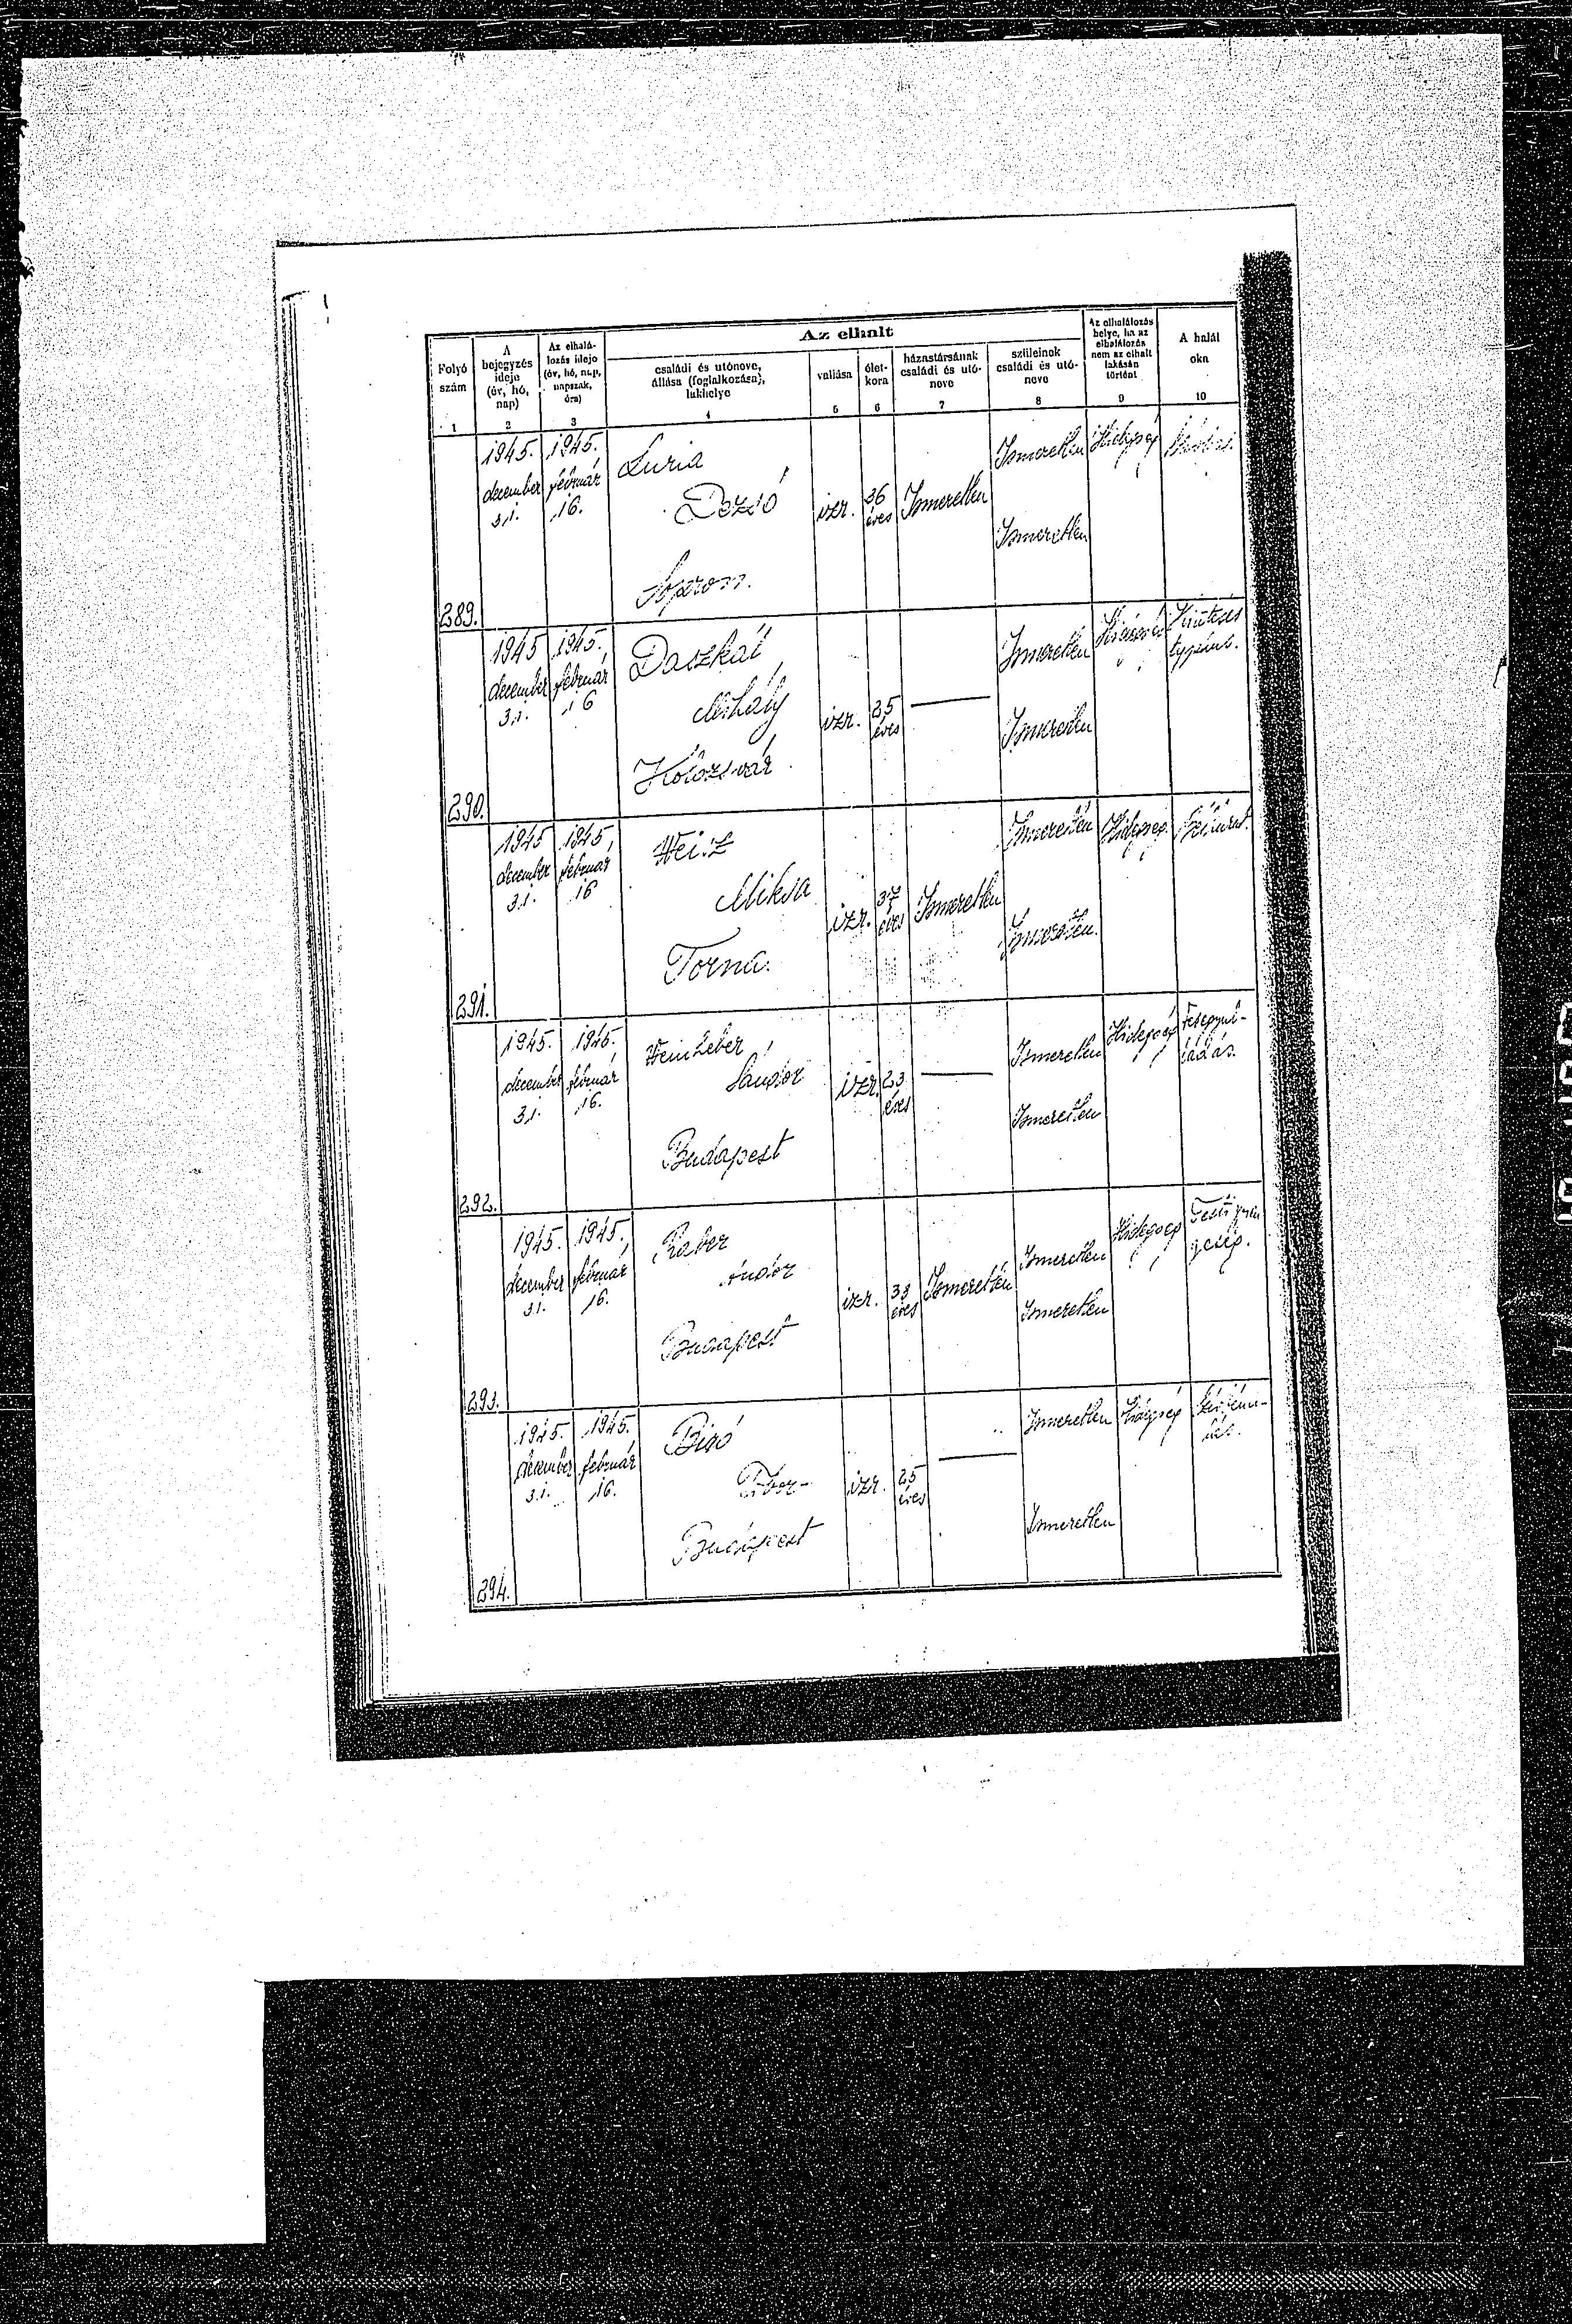 Az elhalt
Folyó szám
A bejegyzés ideje (év, hó, nap)
Az elhalálozás ideje (év, hó, nap, napszak, óra)
családi és utóneve, állása (foglalkozása), lakhelye
vallása
életkora
házastársának családi és utóneve
szüleinek családi és utóneve
Az elhalálozás helye, ha az elhalálozás nem az elhalt lakásán történt
A halál oka
1 2 3 4 5 6 7 8 9 10
289. 1945. december 31. 1945. február 16. Luria Dezső Sopron. izr. 36 éves Ismeretlen Ismeretlen Ismeretlen Hidegség
290. 1945 december 31. 1945. február 16 Daszkál Mihály Kolozsvár izr. 25 éves — Ismeretlen Ismeretlen Hidegség Kiütéses typhus.
291. 1945 december 31. 1945, február 16 Weisz Miksa Torna. izr. 37 éves Ismeretlen Ismeretlen Ismeretlen. Hidegség
292. 1945. december 31. 1945. február 16. Sándor Budapest izr. 23 éves — Ismeretlen Ismeretlen Hidegség
293. 1945. december 31. 1945. február 16. Raber Budapest izr. 33 éves Ismeretlen Ismeretlen Ismeretlen Hidegség
294. 1945. december 31. 1945. február 16. Biró Tibor Budapest izr. 25 éves — Ismeretlen Ismeretlen Hidegség